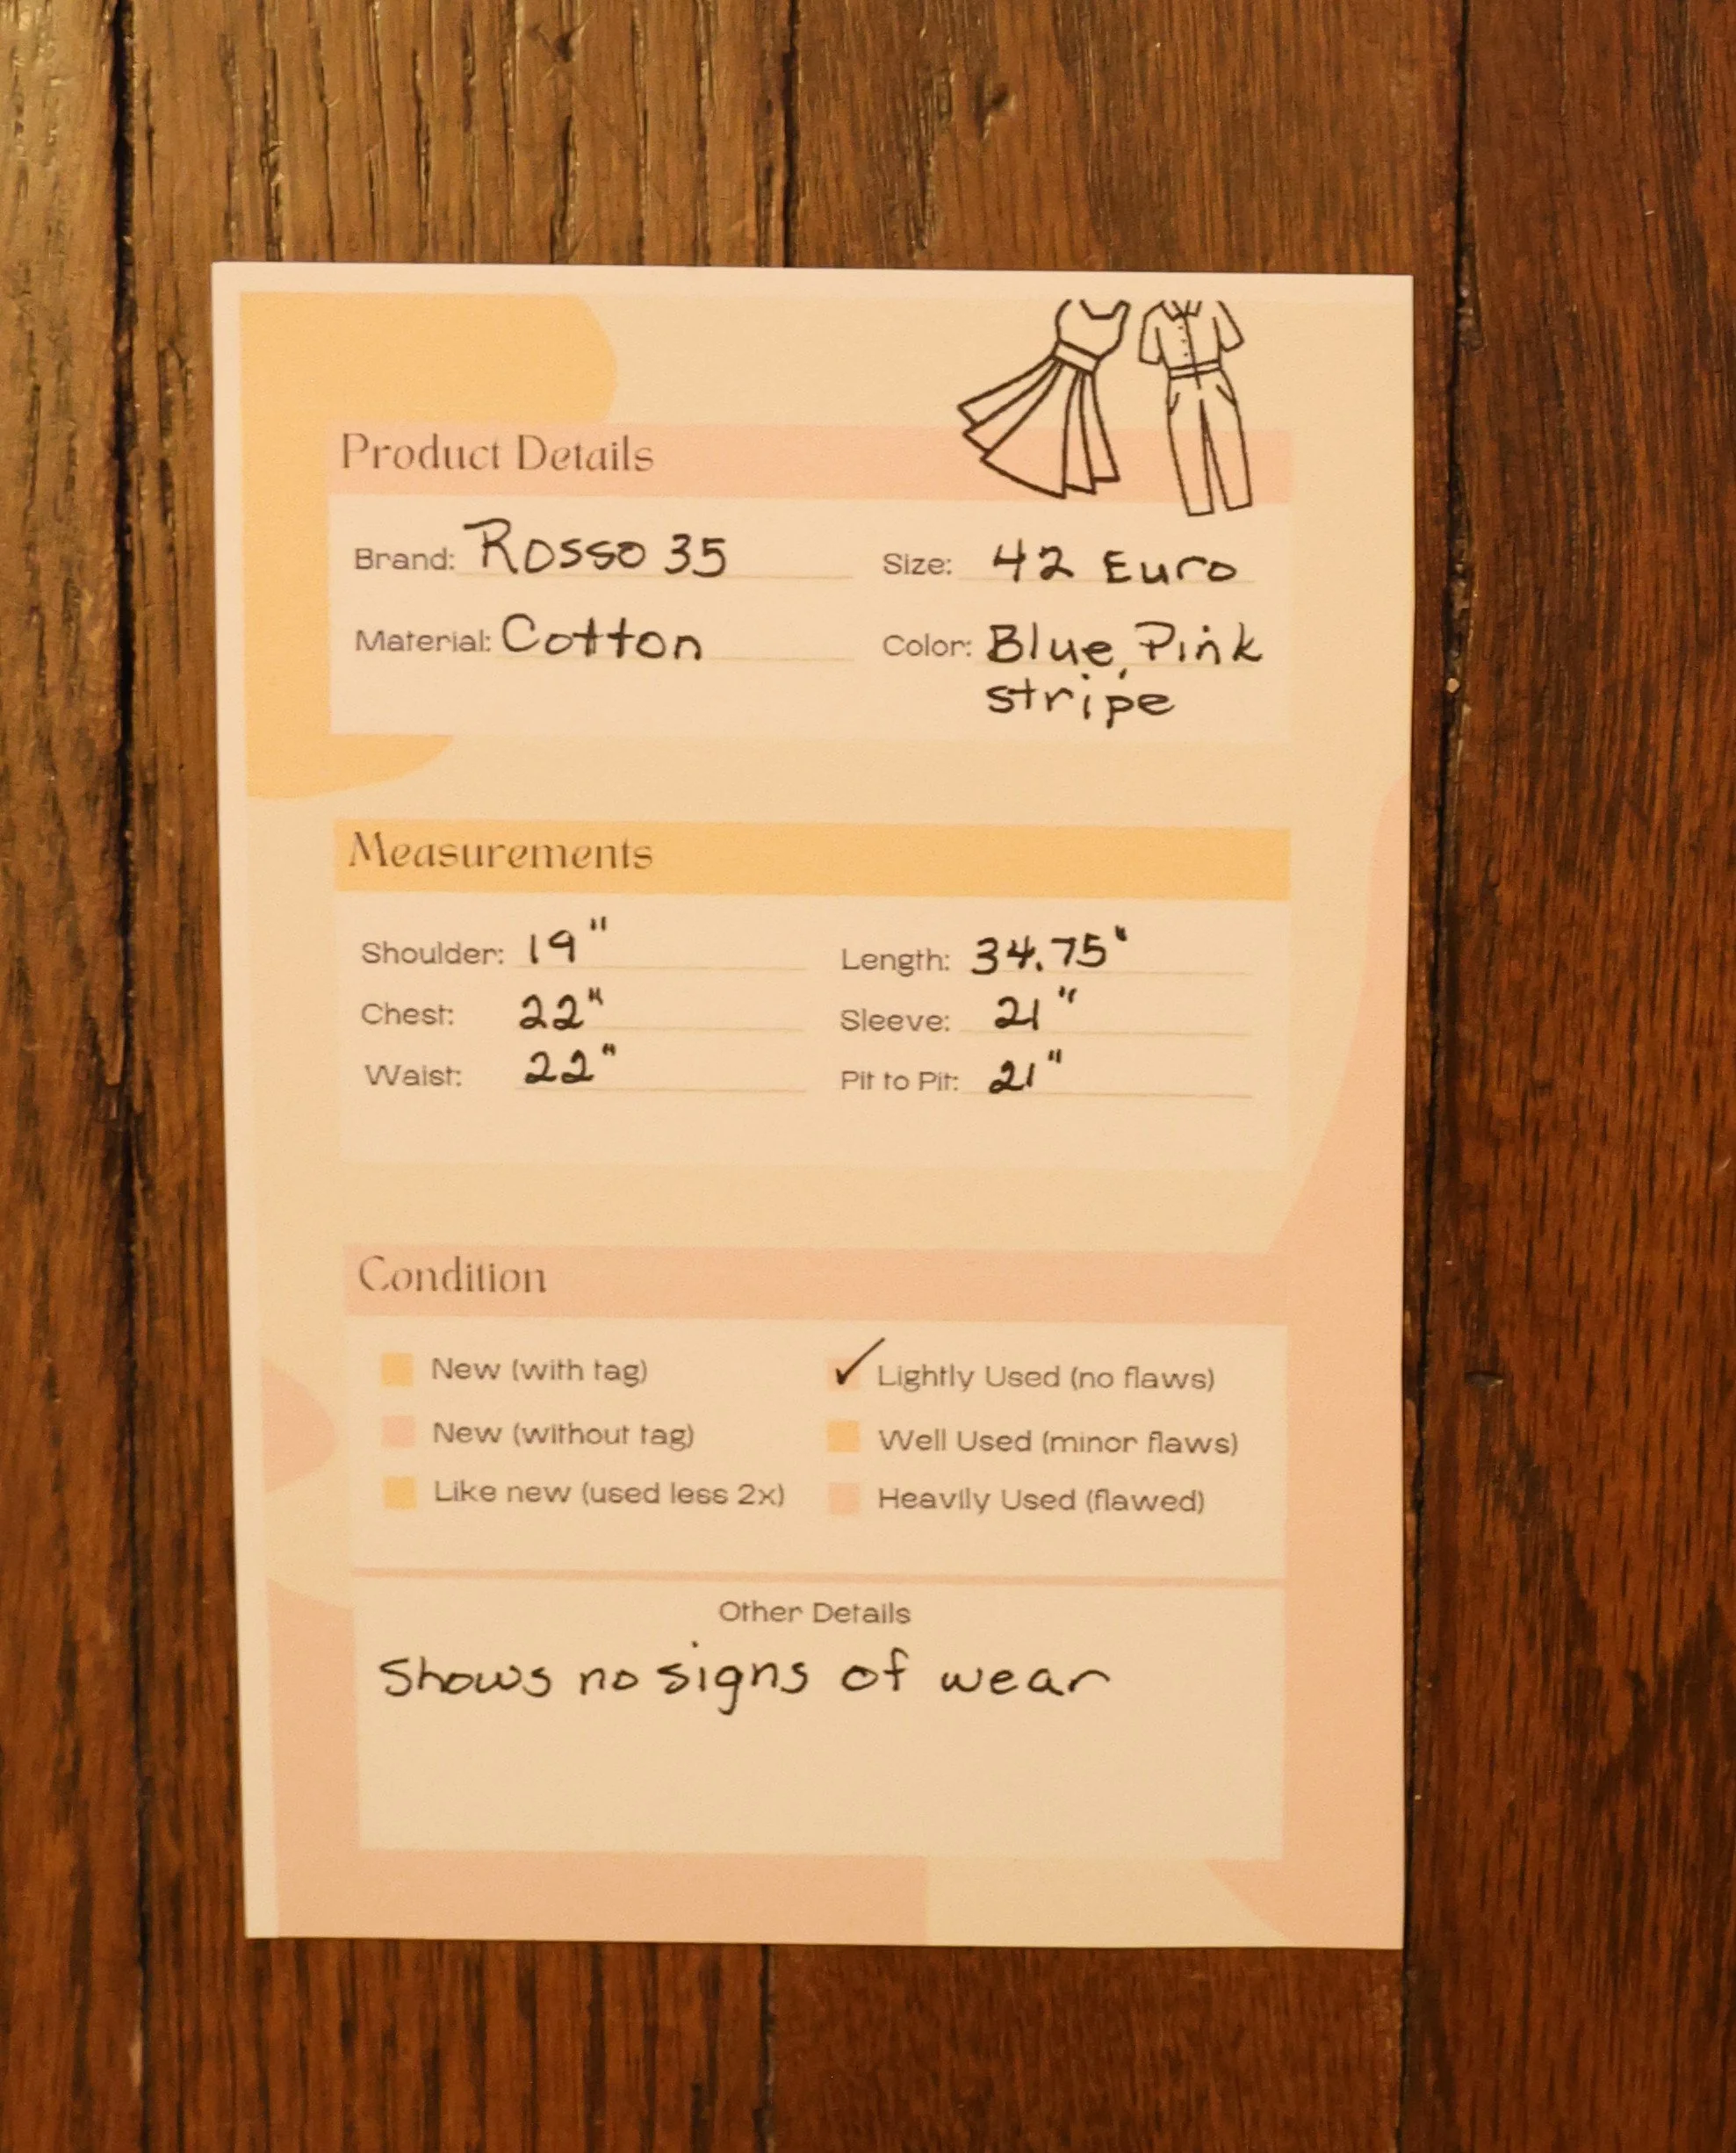 Product Details
Brand: Rosso 35 Size: 42 Euro
Material: Cotton Color: Blue, Pink
stripe
Measurements
Shoulder: 19" Length: 34.75"
Chest: 22" Sleeve: 21"
Waist: 22" Pit to Pit: 21"
Condition
New (with tag) ✓ Lightly Used (no flaws)
New (without tag) Well Used (minor flaws)
Like new (used less 2x) Heavily Used (flawed)
Other Details
Shows no signs of wear